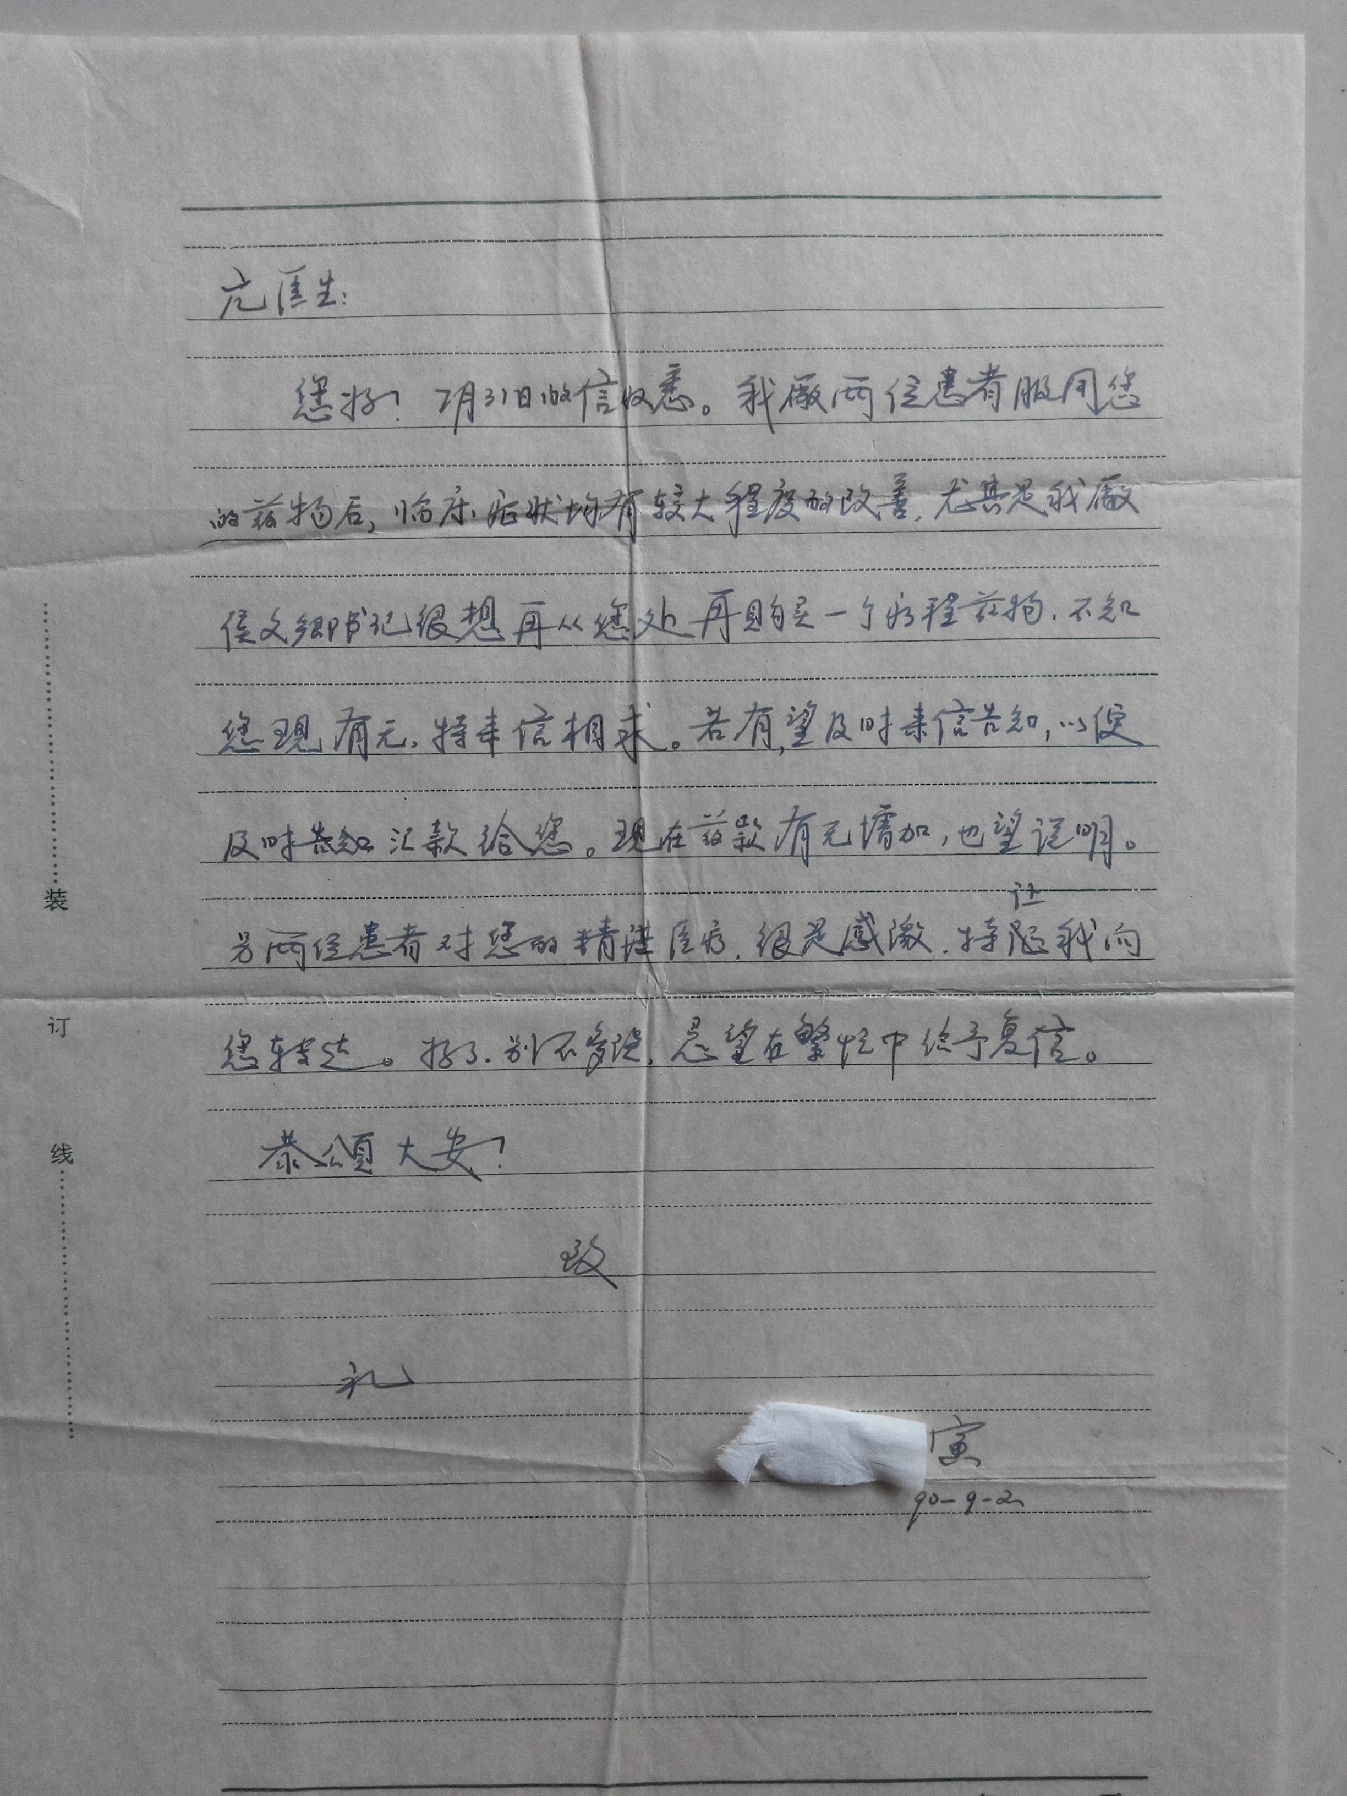 亢医生：
您好！7月31日的信收悉。我厰两位患者服用您
的药物后，临床症状均有较大程度的改善，尤其是我厰
侯文卿书记很想再从您处再购买一个疗程药物，不知
您现有无，特来信相求。若有，望及时来信告知，以便
及时汇款给您。现在药款有无增加，也望说明。
让
另两位患者对您的精湛医疗，很是感激，特我向
您转达。好了，别不多说，恳望在繁忙中给予复信。
恭颂大安！
致
礼
寅
90-9-2
装
订
线